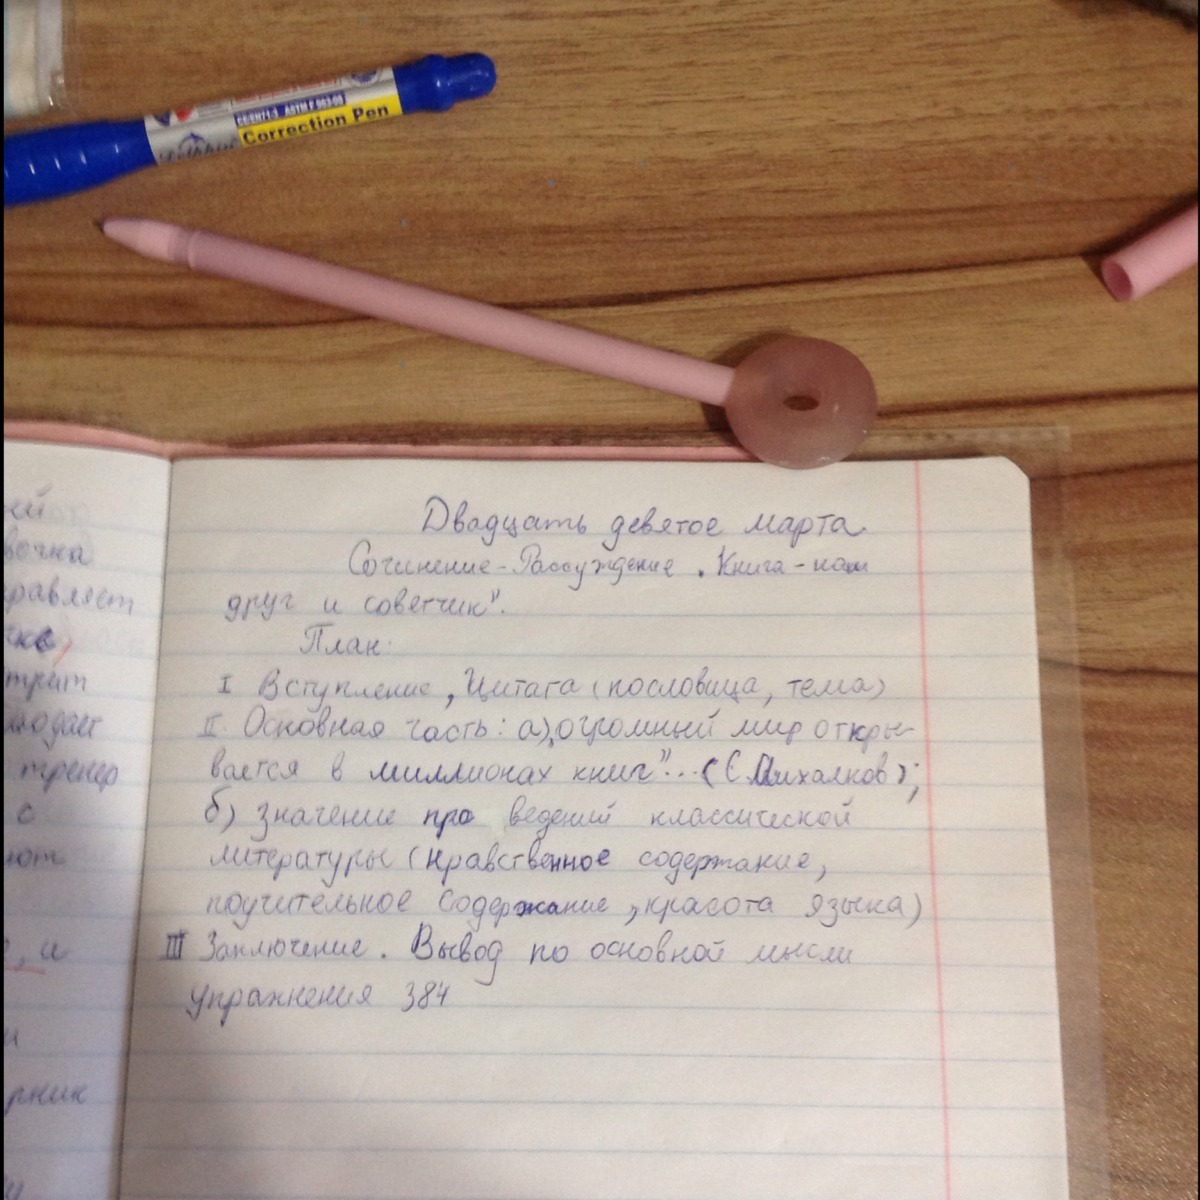 CE/EN71-3 ASTM F 963-08
Correction Pen
Двадцать девятое марта
Сочинение-Рассуждение „Книга-наш
друг и советчик".
План:
I Вступление, Цитата (пословица, тема)
II. Основная часть: а) „огромный мир откры-
вается в миллионах книг"... (С.Михалков);
б) Значение про ведений классической
литературы (нравственное содержание,
поучительное содержание, красота языка)
III Заключение. Вывод по основной мысли
Упражнения 384
вочка
равляет
трит
тренер
с
, и
рник